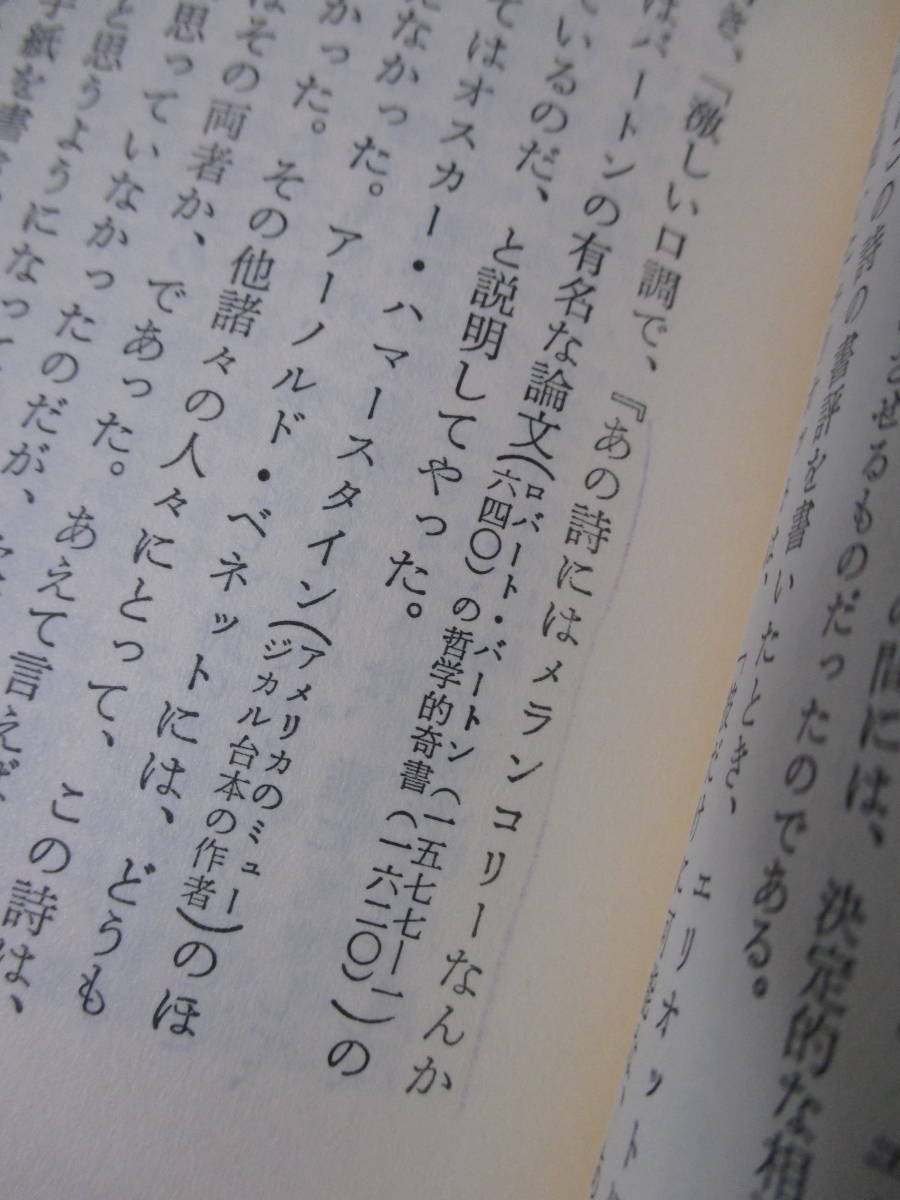 の間には、決定的な相
させるものだったのである。
の詩の書評を書いたとき、エリオット
き、「激しい口調で、『あの詩にはメランコリーなんか
はバートンの有名な論文(ロバート・バートン(一五七七―一六四〇)の哲学的奇書(一六二〇))の
ているのだ、と説明してやった。
てはオスカー・ハマースタイン(アメリカのミュージカル台本の作者)のほ
になかった。アーノルド・ベネットには、どうも
かった。その他諸々の人々にとって、この詩は、
はその両者か、であった。あえて言えば
思っていなかったのだが、
と思うようになって
手紙を書